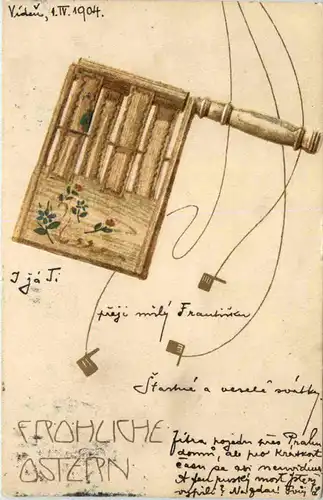 Vídeň, 1. IV. 1904.
I já Ti
přeji milý Františku
Šťastné a veselé svátky
FRÖHLICHE
OSTERN
Zítra pojedu přes Prahu
domů, ale pro krátkost
času se asi neuvidíme